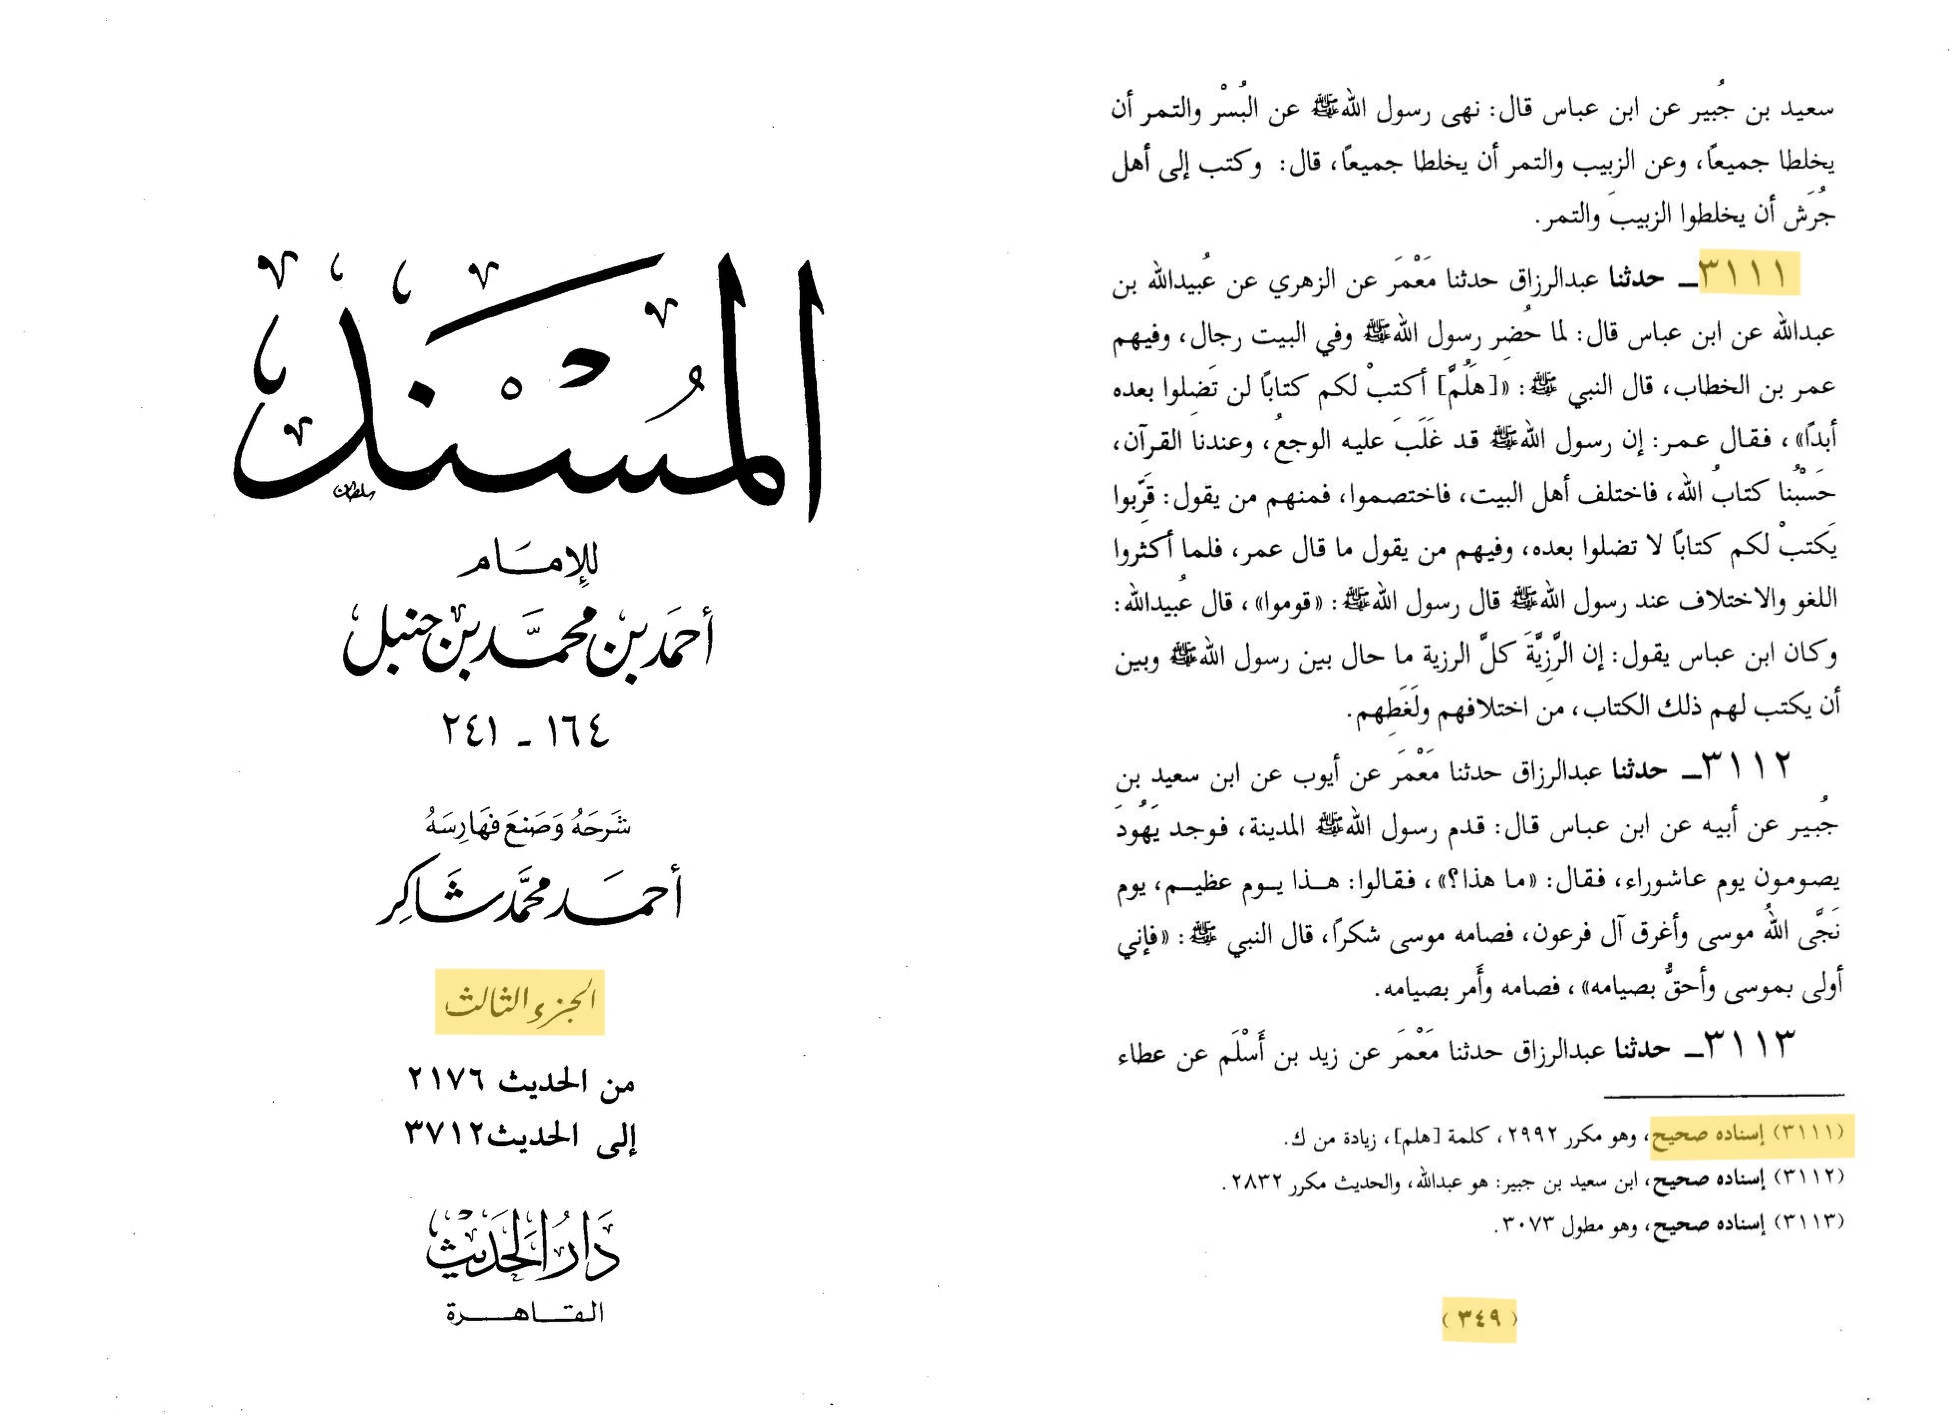 المسند
سلطان
للإمام
أحمد بن محمد بن حنبل
١٦٤ - ٢٤١
شَرَحَهُ وَصَنَعَ فَهَارِسَهُ
أحمد محمد شاكر
الجزء الثالث
من الحديث ٢١٧٦
إلى الحديث ٣٧١٢
دار الحديث
القاهرة
سعيد بن جُبير عن ابن عباس قال: نهى رسول الله ﷺ عن البُسْر والتمر أن
يخلطا جميعاً، وعن الزبيب والتمر أن يخلطا جميعاً، قال: وكتب إلى أهل
جُرَش أن يخلطوا الزبيبَ والتمر.
٣١١١ـ حدثنا عبدالرزاق حدثنا مَعْمَر عن الزهري عن عُبيدالله بن
عبدالله عن ابن عباس قال: لما حُضِر رسول الله ﷺ وفي البيت رجال، وفيهم
عمر بن الخطاب، قال النبي ﷺ: «[هَلُمَّ] أكتبْ لكم كتاباً لن تَضِلوا بعده
أبداً»، فقال عمر: إن رسول الله ﷺ قد غَلَبَ عليه الوجعُ، وعندنا القرآن،
حَسْبُنا كتابُ الله، فاختلف أهل البيت، فاختصموا، فمنهم من يقول: قَرِّبوا
يَكتبْ لكم كتاباً لا تضلوا بعده، وفيهم من يقول ما قال عمر، فلما أكثروا
اللغو والاختلاف عند رسول الله ﷺ قال رسول الله ﷺ: «قوموا»، قال عُبيدالله:
وكان ابن عباس يقول: إن الرَّزِيَّةَ كلَّ الرزية ما حال بين رسول الله ﷺ وبين
أن يكتب لهم ذلك الكتاب، من اختلافهم ولَغَطِهم.
٣١١٢ـ حدثنا عبدالرزاق حدثنا مَعْمَر عن أيوب عن ابن سعيد بن
جُبير عن أبيه عن ابن عباس قال: قدم رسول الله ﷺ المدينة، فوجد يَهُودَ
يصومون يوم عاشوراء، فقال: «ما هذا؟»، فقالوا: هذا يوم عظيم، يوم
نَجَّى اللهُ موسى وأغرق آل فرعون، فصامه موسى شكراً، قال النبي ﷺ: «فإني
أولى بموسى وأحقُّ بصيامه»، فصامه وأَمر بصيامه.
٣١١٣ـ حدثنا عبدالرزاق حدثنا مَعْمَر عن زيد بن أَسْلَم عن عطاء
(٣١١١) إسناده صحيح، وهو مكرر ٢٩٩٢، كلمة [هلم]، زيادة من ك.
(٣١١٢) إسناده صحيح، ابن سعيد بن جبير: هو عبدالله، والحديث مكرر ٢٨٣٢.
(٣١١٣) إسناده صحيح، وهو مطول ٣٠٧٣.
(٣٤٩)